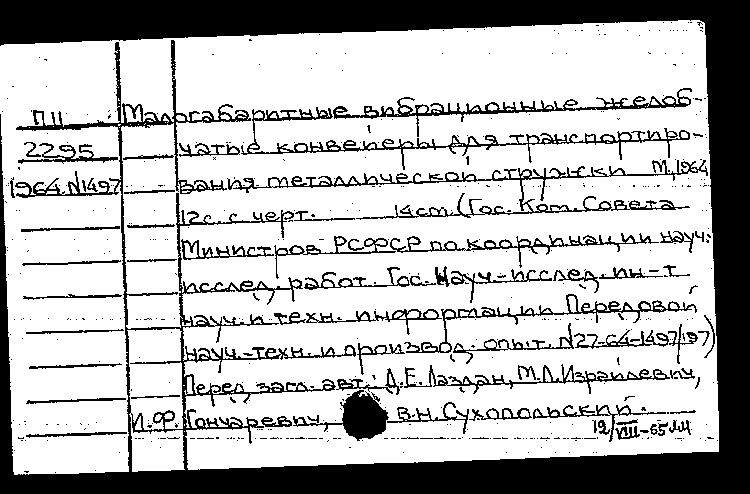 П11 Малогабаритные вибрационные желоб-
2295 чатые конвейеры для транспортиро-
1964.N1497 вания металлической стружки М, 1964
12с. с черт. 14cm. (Гос. Ком. Совета
Министров РСФСР по координации науч:
исслед. работ. Гос. Науч.-исслед. ин-т
науч. и техн. информации Передовой
науч.-техн. и производ. опыт. N27-64-1497/197)
Перед загл. авт.: Д.Е. Лаздан, М.Л. Израйлевич,
И.Ф. Гончаревич, В.Н. Сухопольский.
12/VIII-65